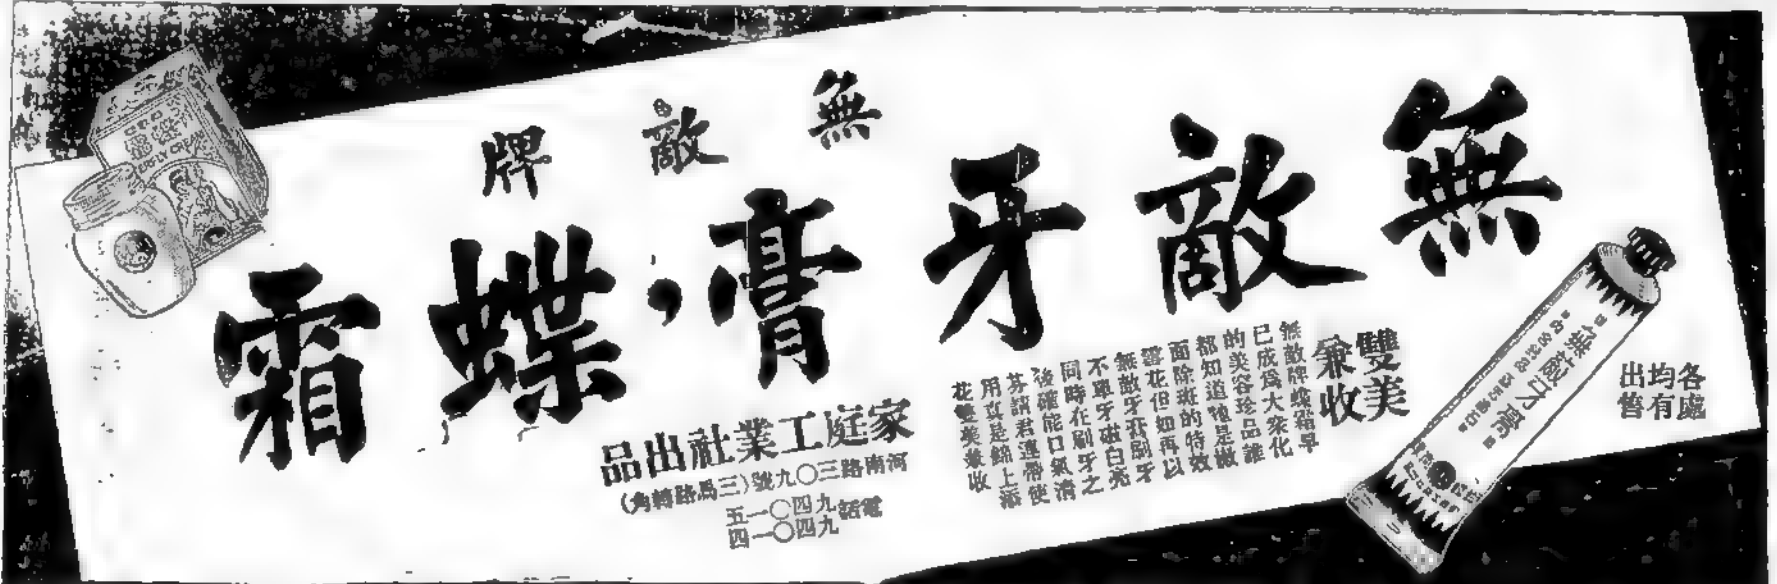 無敵牙膏，蝶霜
無敵牌
各處
均有
出售
雙美
兼收
無敵牌蝶霜早
已成爲大衆化
的美容珍品誰
都知道牠是嫩
面除斑的特效
霜花但如再以
無敵牙膏刷牙
不單牙磁白亮
同時在刷牙之
後確能口氣清
芬請君連帶使
用眞是錦上添
花雙美兼收
家庭工業社出品
河南路三〇九號(三馬路轉角)
電話九四〇一五
九四〇一四